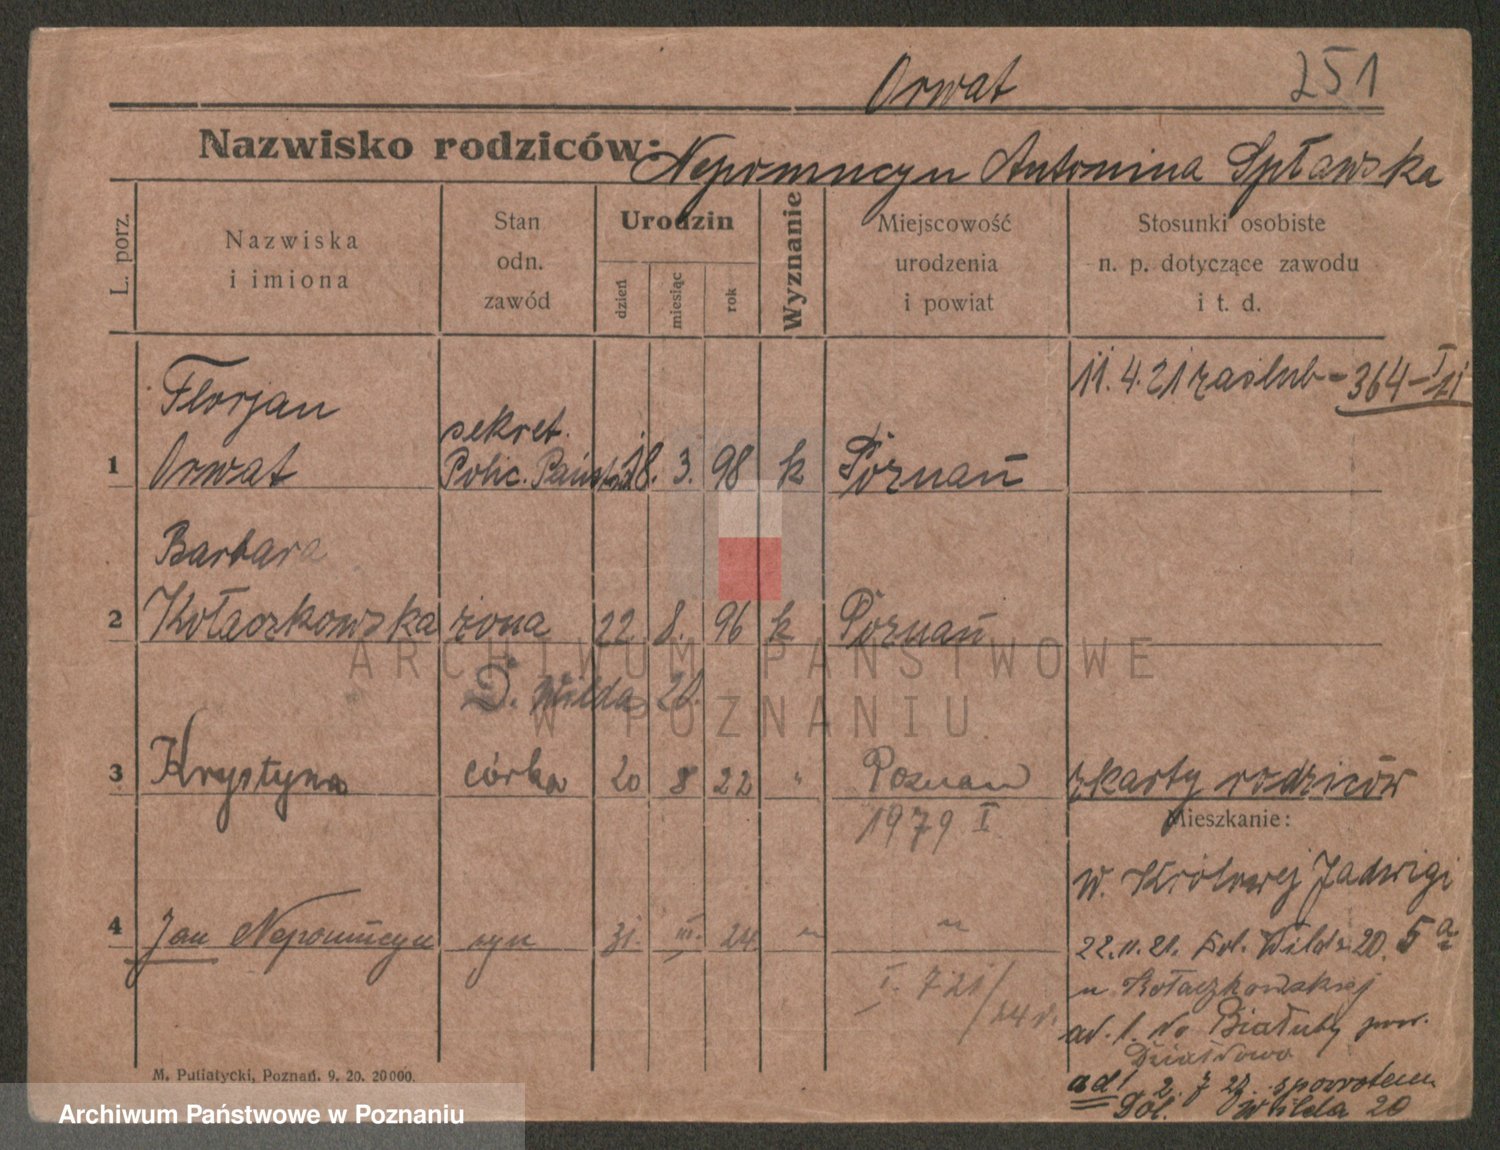 Orwat 251
Nazwisko rodziców: Nepomucyn Antonina Spławska
L. porz.
Nazwiska
i imiona
Stan
odn.
zawód
Urodzin
dzień
miesiąc
rok
Wyznanie
Miejscowość
urodzenia
i powiat
Stosunki osobiste
n. p. dotyczące zawodu
i t. d.
11.4.21 zaślub - 364 - I/21
1 Florjan
Orwat
sekret.
Polic. Państ.
18. 3. 98 k Poznań
2 Barbara
Kołaczkowska żona 22. 8. 96 k Poznań
D. Wilda 20.
3 Krystyna córka 20 8 22 " Poznań z karty rodziców
1979 I
Mieszkanie:
w. Królowej Jadwigi
5a
4 Jan Nepomucyn syn 31. III. 24 " "
I. 721/24
22.11.21. Dol. Wilda 20.
u Kołaczkowskiej
ad. 1. do Białuty pow.
Działdowo
ad 1 2. 7 27. spowrotem
Dol. Wilda 20
M. Putiatycki, Poznań. 9. 20. 20000.
ARCHIWUM PAŃSTWOWE
W POZNANIU
Archiwum Państwowe w Poznaniu